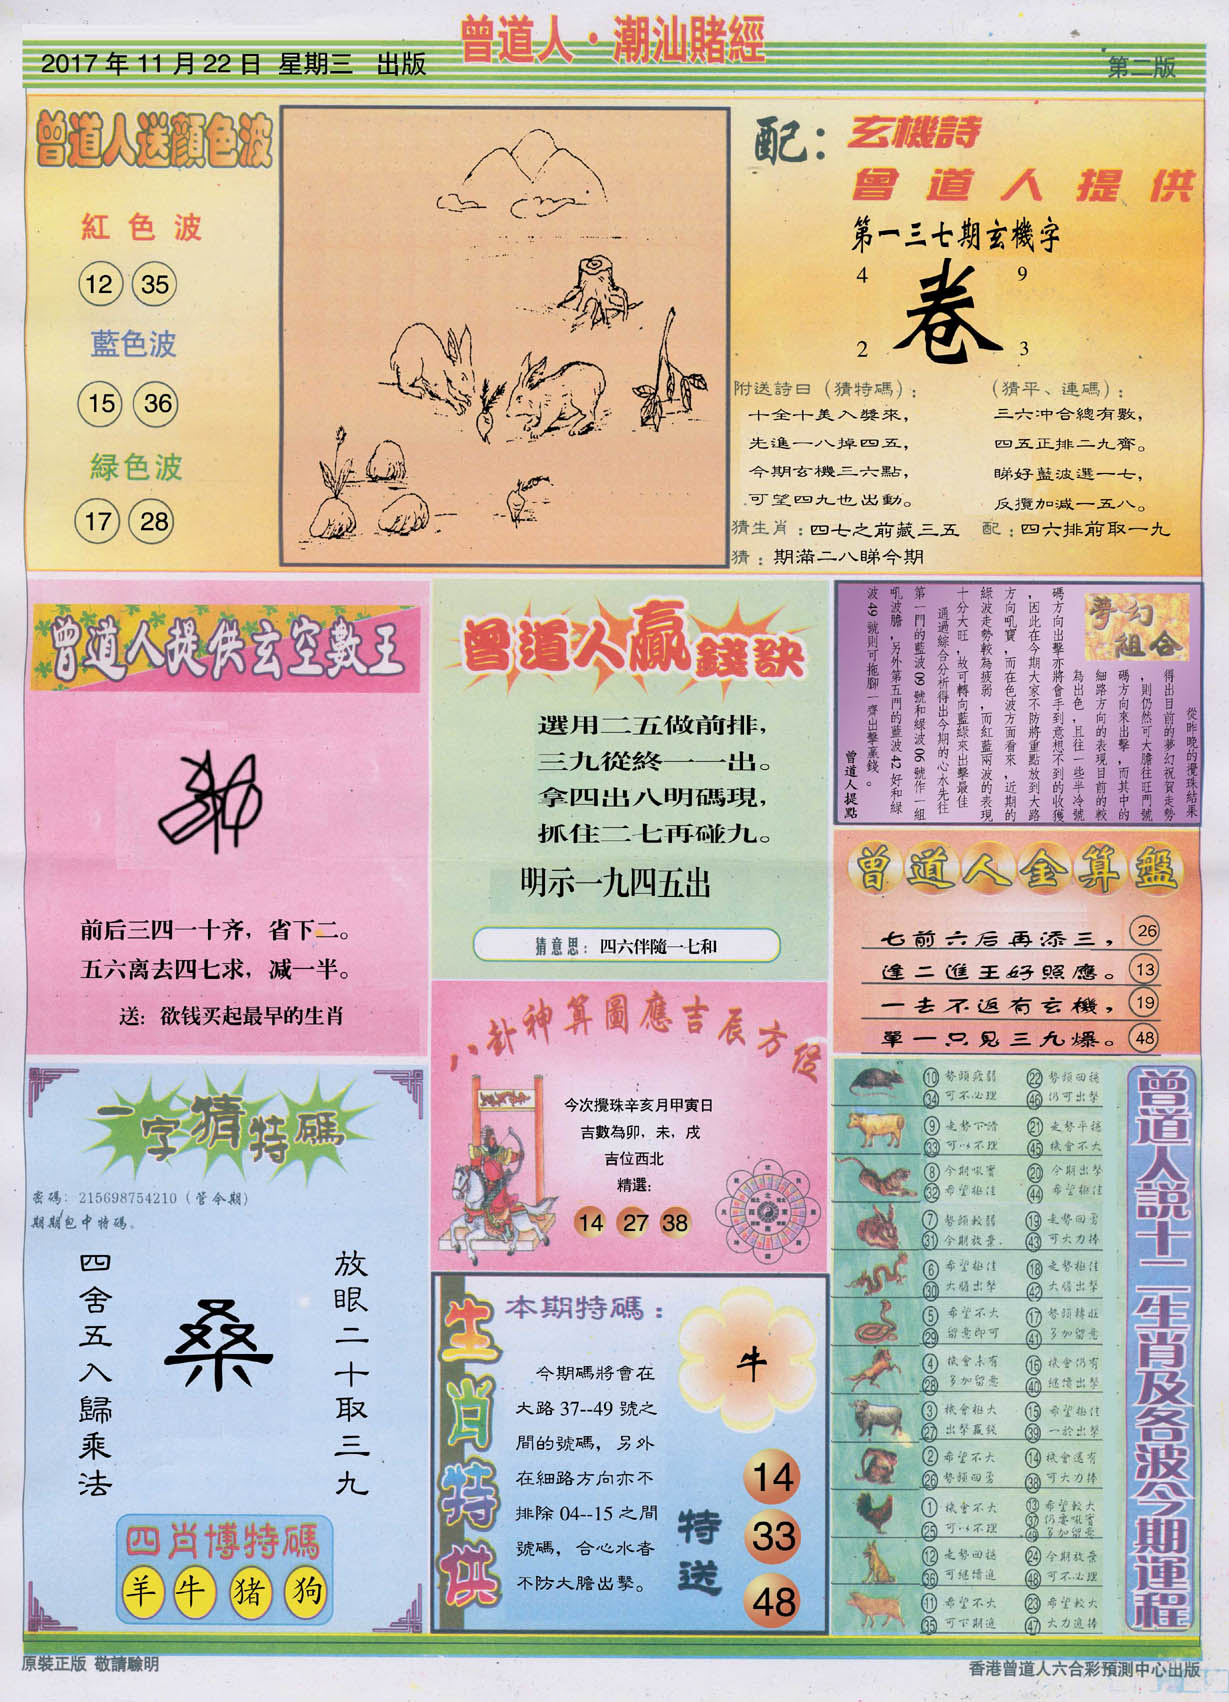 曾道人·潮汕賭經
2017 年 11 月 22 日 星期三 出版
第二版
曾道人送顏色波
紅色波
12 35
藍色波
15 36
緑色波
17 28
配：
玄機詩
曾道人提供
第一三七期玄機字
4 9
卷
2 3
附送詩曰（猜特碼）：
十全十美入獎來，
先進一八掉四五，
今期玄機三六點，
可望四九也出動。
（猜平、連碼）：
三六冲合總有數，
四五正排二九齊。
睇好藍波選一七，
反攬加減一五八。
猜生肖：四七之前藏三五
配：四六排前取一九
猜：期滿二八睇今期
曾道人提供玄空數王
前后三四一十齐，省下二。
五六离去四七求，减一半。
送：欲钱买起最早的生肖
曾道人贏錢訣
選用二五做前排，
三九從終一一出。
拿四出八明碼現，
抓住二七再碰九。
明示一九四五出
猜意思：四六伴隨一七和
夢幻
組合
從昨晚的攪珠結果
得出目前的夢幻祝賀走勢
，則仍然可大膽往旺門號
碼方向來出擊，而其中的
細路方向的表現目前的較
為出色，且往一些半冷號
碼方向出擊亦將會手到意想不到的收獲
，因此在今期大家不防將重點放到大路
方向吼寶，而在色波方面看來，近期的
綠波走勢較為疲弱，而紅藍兩波的表現
十分大旺，故可轉向藍綠來出擊最佳
通過綜合分析得出今期的心水先往
第一門的藍波 09 號和綠波 06 號作一組
吼波膽，另外第五門的藍波 42 好和綠
波 49 號則可拖腳一齊出擊贏錢。
曾道人提點
曾道人金算盤
七前六后再添三， 26
逢二進王好照應。 13
一去不返有玄機， 19
單一只見三九爆。 48
八卦神算圖應吉辰方位
今次攪珠辛亥月甲寅日
吉數為卯，未，戌
吉位西北
精選：
14 27 38
一字猜特碼
密碼：215698754210（管令期）
期期包中特碼。
放眼二十取三九
桑
四舍五入歸乘法
四肖博特碼
羊 牛 猪 狗
生肖特供
本期特碼：
今期碼將會在
大路 37--49 號之
間的號碼，另外
在細路方向亦不
排除 04--15 之間
號碼，合心水者
不防大膽出擊。
牛
特送
14
33
48
曾道人説十二生肖及各波今期運程
10 勢頭疲弱 22 勢頭回穩
34 可不必理 46 仍可出擊
9 走勢下滑 21 走勢平穩
33 可以不理 45 機會不大
8 今期吼寶 20 今期出擊
32 希望極佳 44 希望極佳
7 勢頭較弱 19 走勢回勇
31 今期放棄 43 可大力捧
6 希望極佳 18 走勢極佳
30 大膽出擊 42 大膽出擊
5 希望不大 17 勢頭轉旺
29 留意即可 41 多加留意
4 機會未有 16 機會仍有
28 多加留意 40 繼續出擊
3 機會極大 15 希望極佳
27 出擊贏錢 39 一於出擊
2 希望不大 14 機會還有
26 勢頭回勇 38 可大力捧
1 機會不大 13 希望較大
37 仍要吼寶
25 可以不理 49 多加留意
12 走勢回穩 24 今期放棄
36 可繼續追 48 可不必理
11 希望不大 23 希望較大
35 可下期追 47 大力追捧
原裝正版 敬請驗明
香港曾道人六合彩預測中心出版